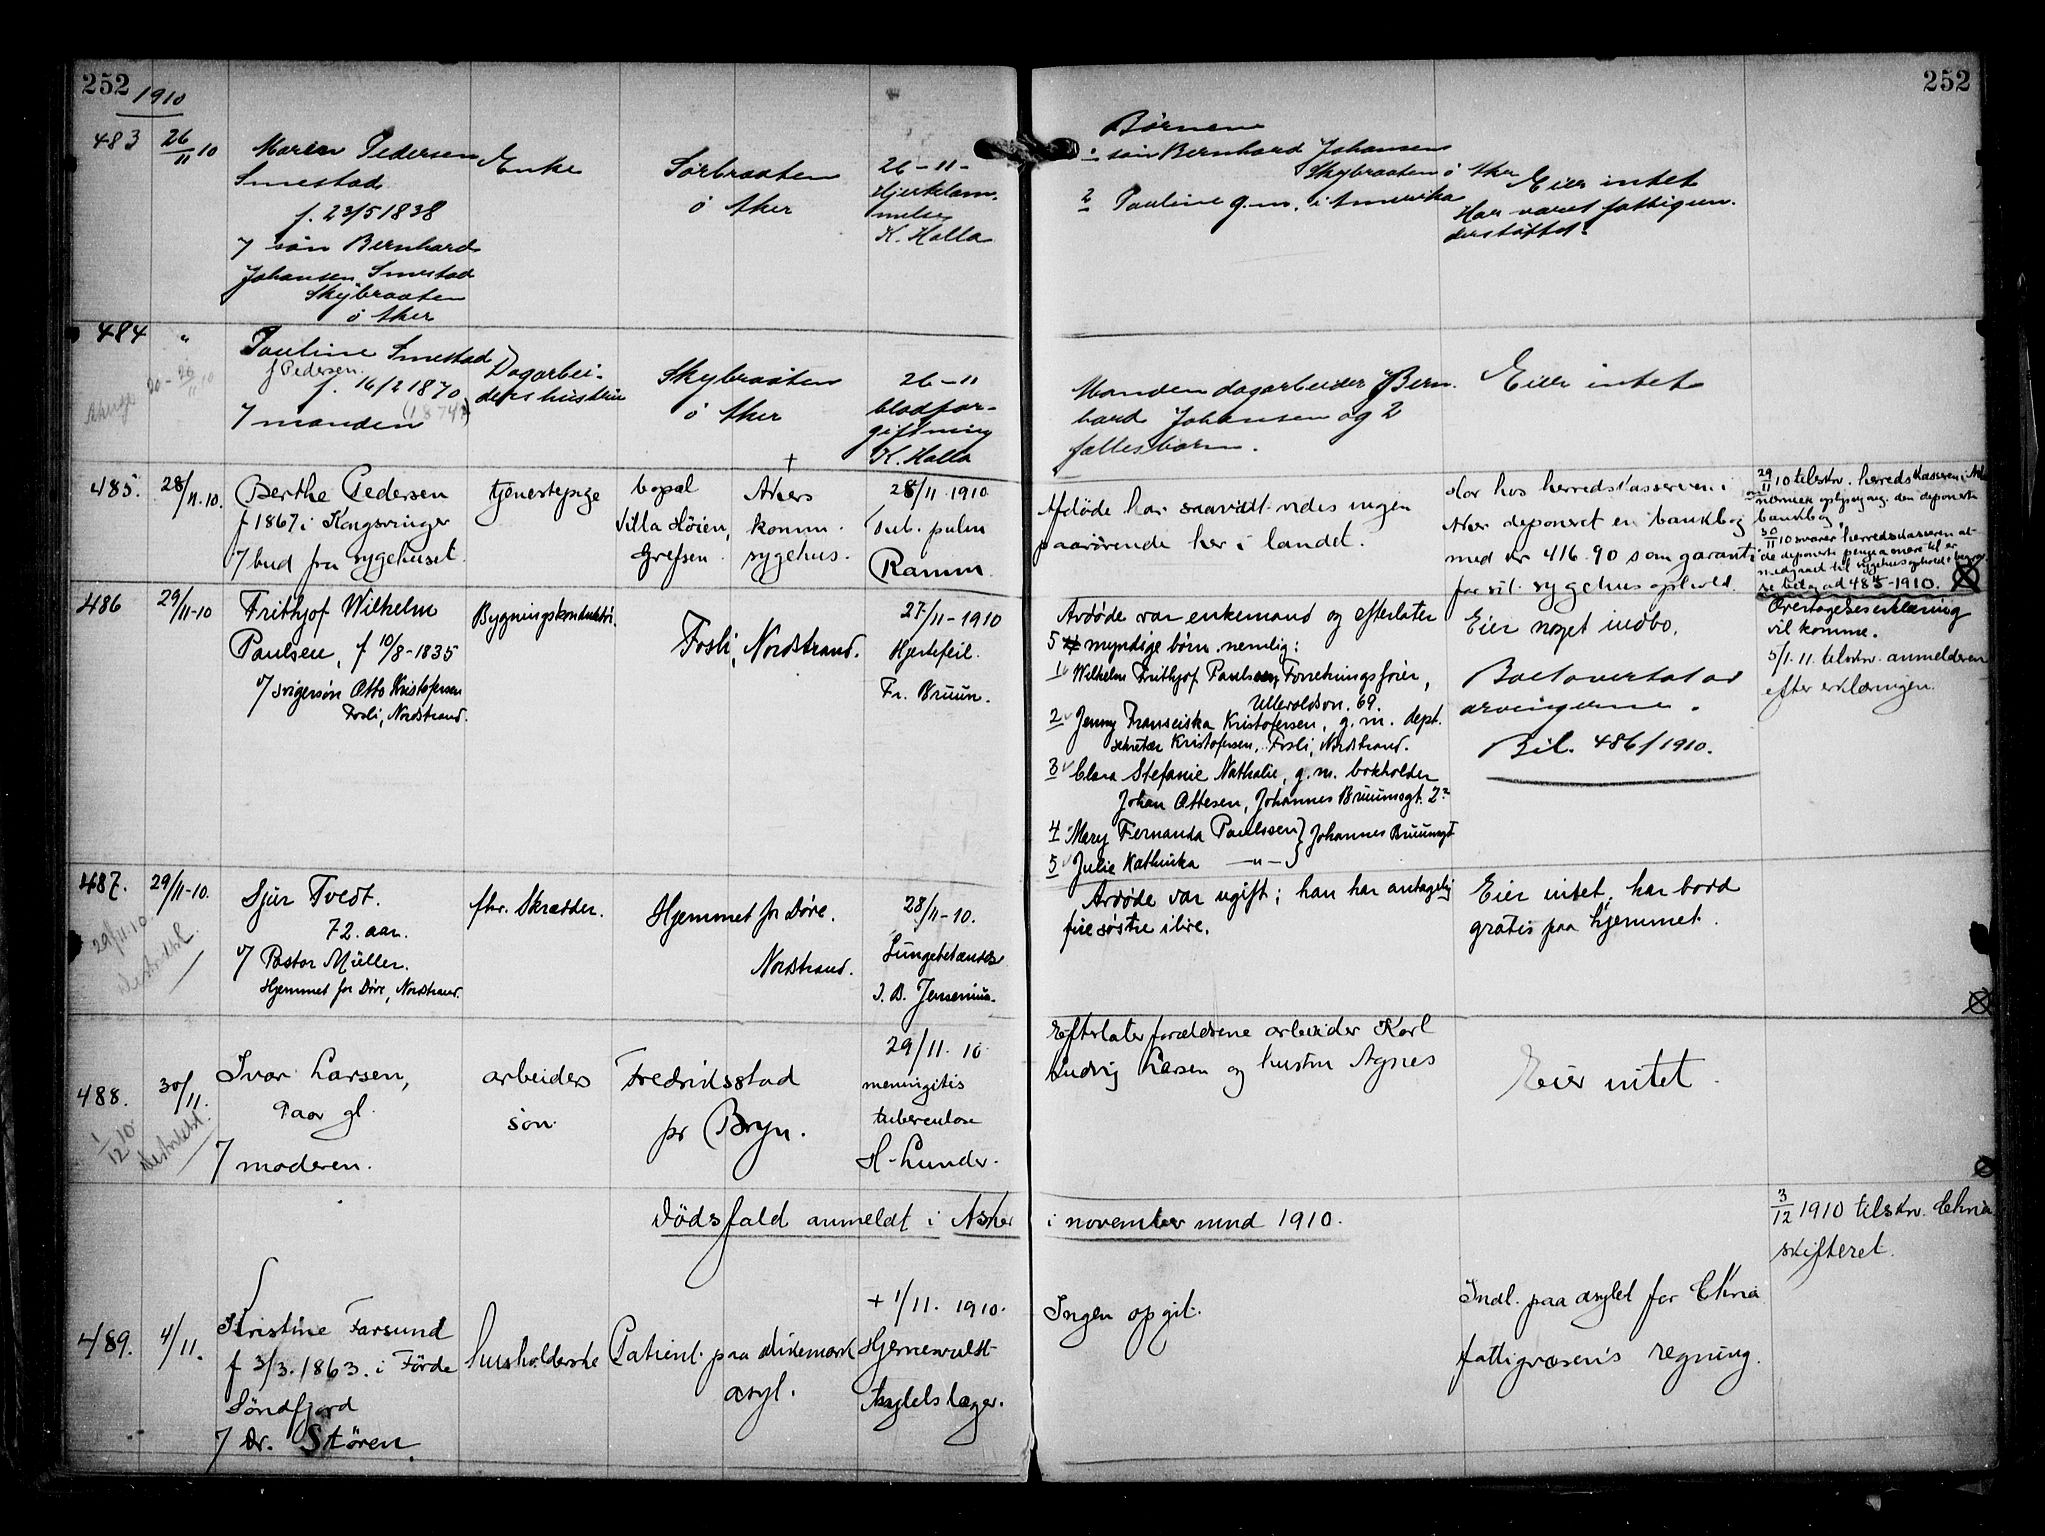 252
252
1910
483
26/11 10
Maren Pedersen
Smestad
f. 23/5 1838
7 søn Bernhard
Johansen Smestad
Skybraaten
ö Aker
Enke
Sørbraaten
ö Aker
26-11-
Hjerklam-
melse
K. Holla
Børnene
1 søn Bernhard Johansen
Skybraaten ö Aker
2 Pauline g.m. i Amerika
Eier intet
Har været fattigun-
derstøttet.
484
"
Pauline Smestad
f Pedersen
f. 16/2 1870
(1874?)
7 manden
Dagarbei-
ders hustru
Skybraaten
ö Aker
26-11
blodfor-
giftning
K. Holla
Manden dagarbeider Bern-
hard Johansen og 2
fællesbarn.
Eier intet
485.
28/11.10.
Berthe Pedersen
f 1867 i Kongsvinger
7 bud fra sygehuset.
tjenestepige
bopæl
Villa Höien,
Grefsen.
+
Akers
komm.
sygehus.
28/11 1910
Tub. pulm
Ramm.
Afdöde har saavidt vides ingen
paarörende her i landet.
Har hos herredskassereren i
Aker deponeret en bankbog
med kr 416.90 som garanti
for sit sygehusophold.
29/11 10 tilskr. herredskassereren i Aker
om nærmere oplysn. ang. den deponerte
bankbog.
30/11 10 svarer herredskassereren at
de deponerte penge
medgaat til sygehusophold
bilag ad 485-1910.
486
29/11-10
Frithjof Wilhelm
Paulsen, f 10/8-1835
7 svigersøn Otto Kristofersen
Fosli, Nordstrand.
Bygningskonduktør.
Fosli, Nordstrand.
27/11-1910
Hjertefeil.
Fr. Bruun.
Avdøde var enkemand og efterlater
5 myndige børn. nemlig:
1 Wilhelm Frithjof Paulssen, Forretningsfører,
Ullevoldsvn. 69.
2 Jenny Franciska Kristofersen, g.m. dept.
sekretær Kristofersen, Fosli, Nordstrand.
3 Clara Stefanie Nathalie, g.m. bokholder
Johan Ottesen, Johannes Bruunsgt. 2
4 Mary Fernanda Paulssen } Johannes Bruunsgt
5 Julie Kathinka —"—
Eier noget indbo.
Boet overtat av
arvingerne.
Bil. 486/1910.
Overtagelseserklæring
vil komme.
5/1. 11. tilskr. anmelderen
efter erklæringen.
487.
29/11-10.
29/11 10
Sjur Tvedt.
72. aar.
7 Pastor Müller.
Hjemmet for Døve, Nordstrand.
fhv. Skrædder.
Hjemmet for Døve.
Nordstrand.
28/11-10.
Lungebetændelse
J. B. Jensenius.
Avdøde var ugift; han har antagelig
fire søstre ilive.
Eier intet, har bodd
gratis paa hjemmet.
488.
30/11.
1/12 10
Ivar Larsen,
9 aar gl.
7 moderen.
arbeiders
søn.
Fredriksstad
pr Bryn.
29/11. 10
meningitis
tuberculosa
H. Lunder.
Efterlater forældrene arbeider Karl
Ludvig Larsen og hustru Agnes
Eier intet.
Dödsfald anmeldt i Asker i november mnd 1910.
489.
4/11.
Kristine Farsund
f 3/3. 1863. i Förde
Söndfjord
7 Dr. Stören.
husholderske
Patient paa Dikemark
asyl.
+ 1/11. 1910.
Hjernesvulst
Asylets læger.
Ingen opgit.
Indl. paa asylet for Chria
fattigvæsens regning.
3/12 1910 tilskr. Chria
skifteret.